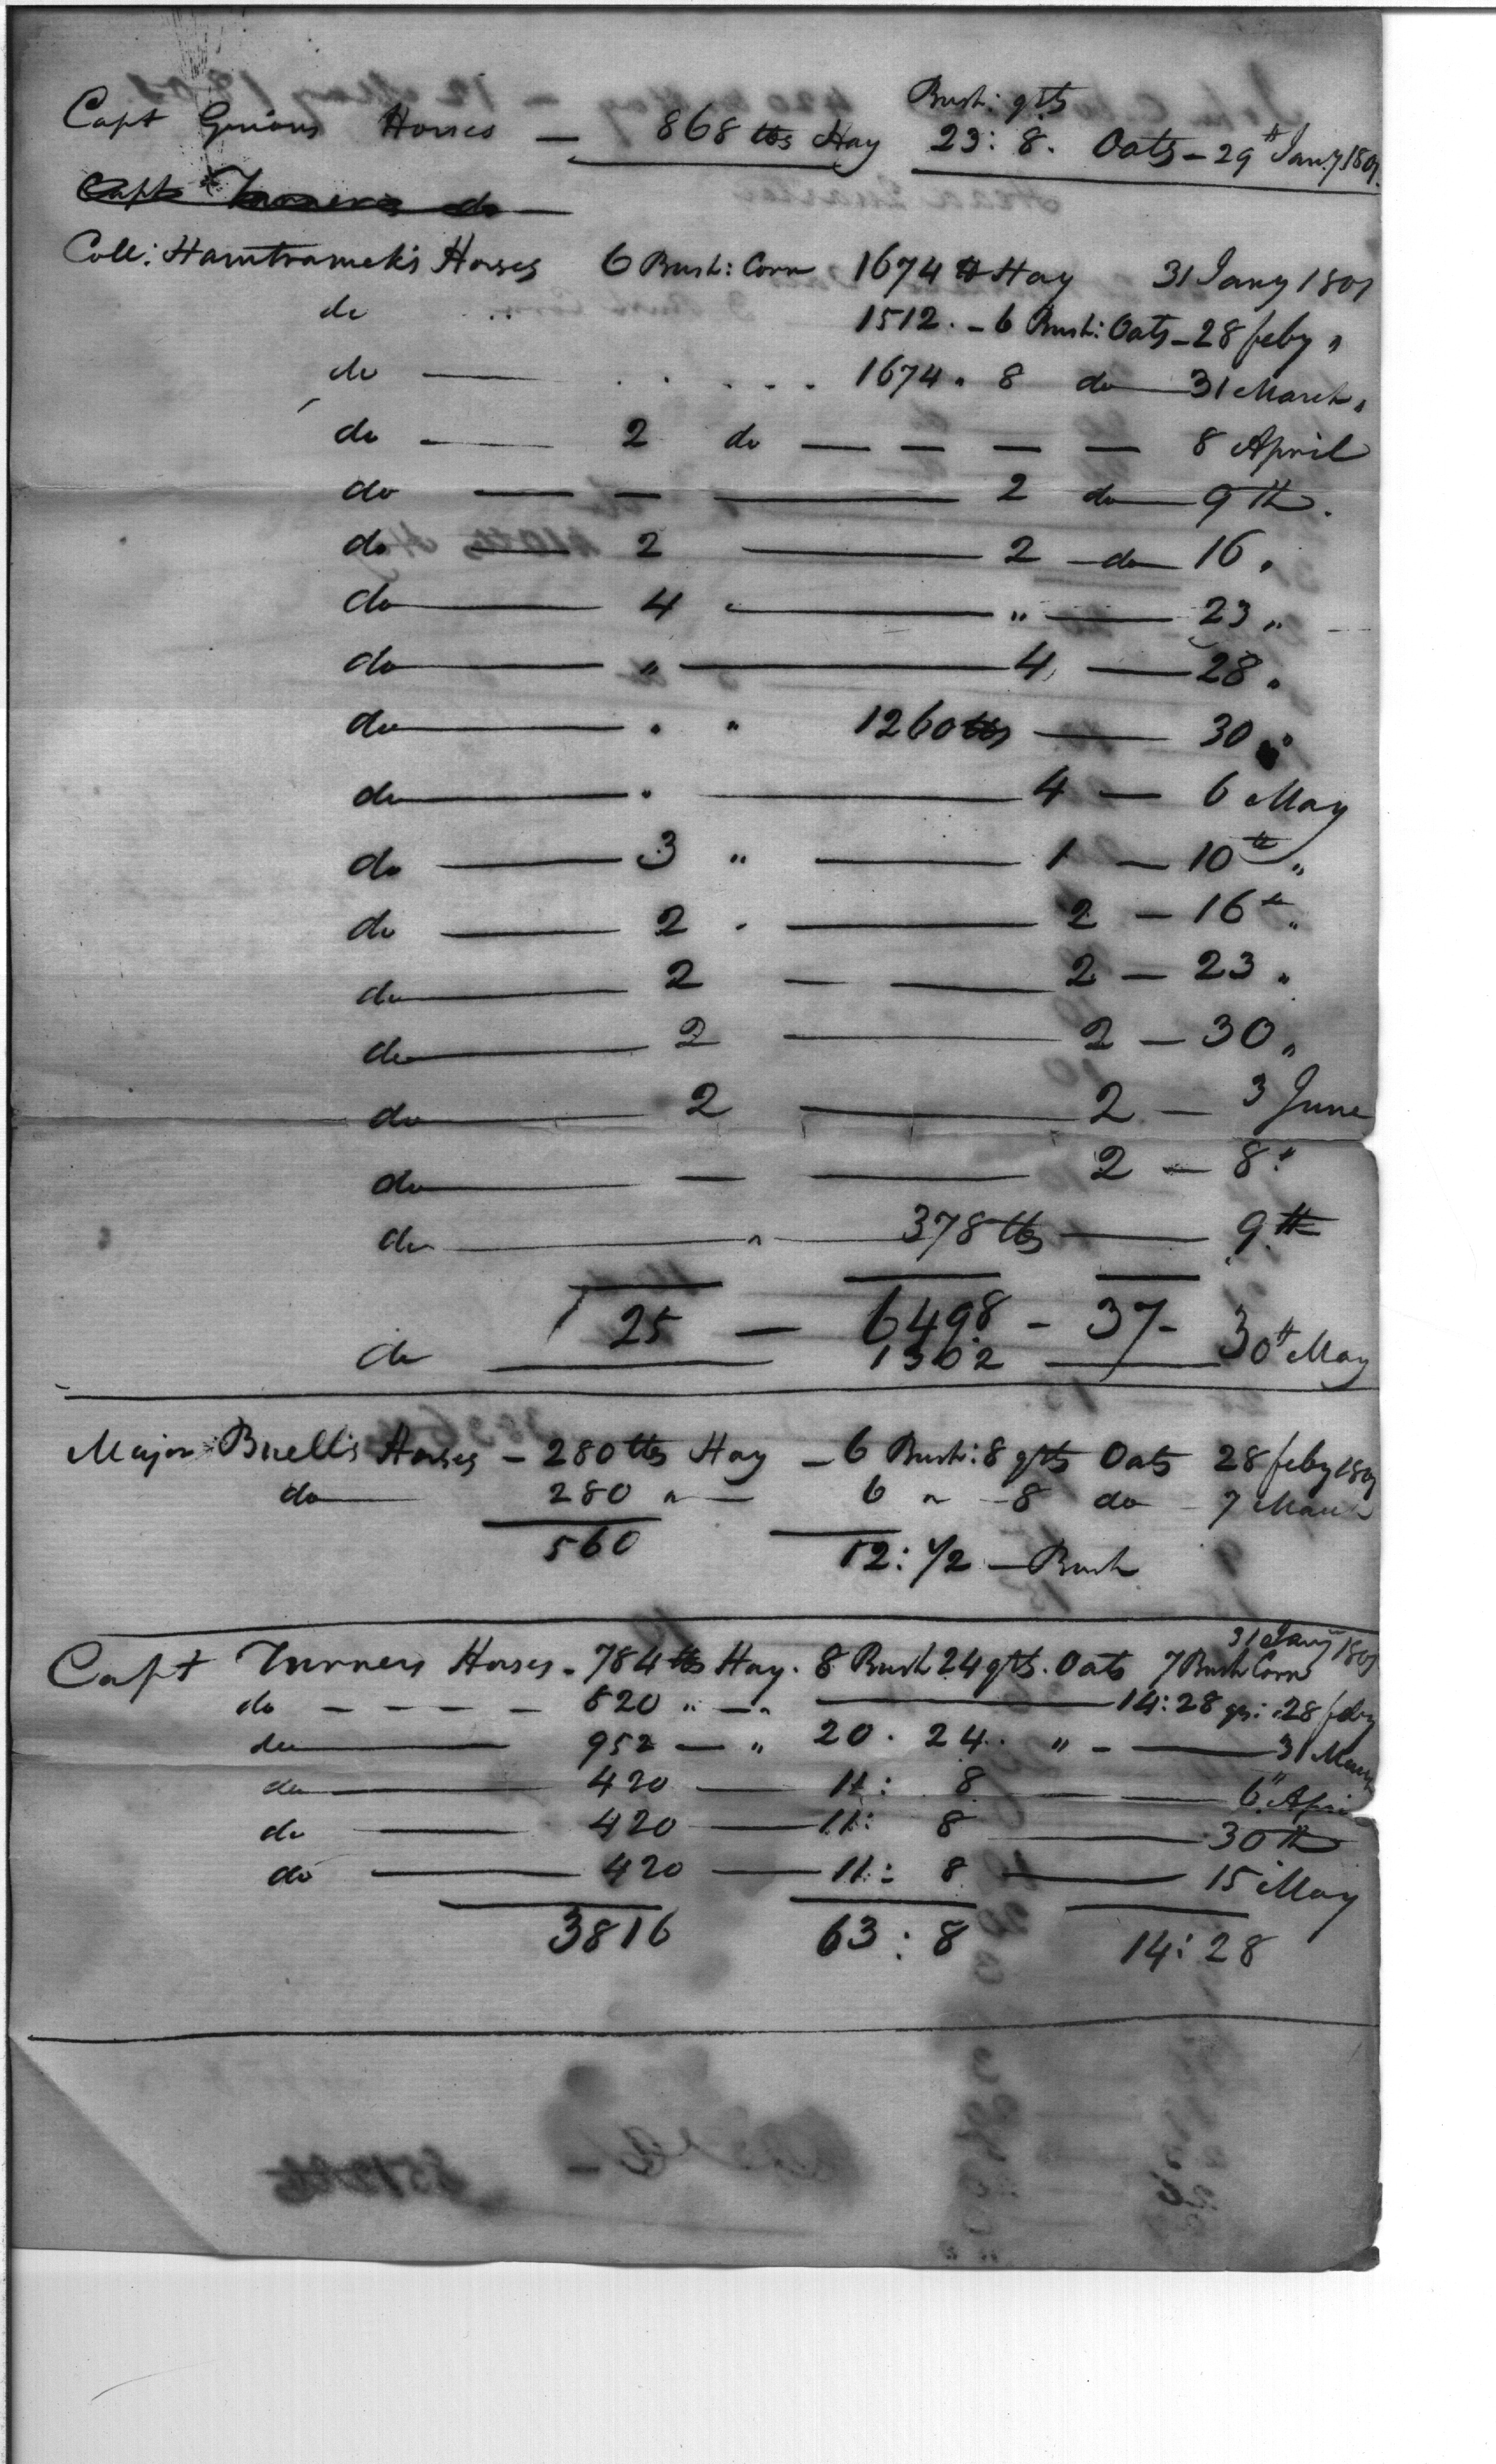 Bush: qts
Capt Guions Horses — 868 lbs Hay 23: 8. Oats — 29th Jany 1801.
Capt Turners do —
Coll: Hamtramck's Horses 6 Bush: Corn 1674 lb Hay 31 Jany 1801
do 1512. - 6 Bush: Oats - 28 feby "
do — . . . . 1674 " 8 do — 31 March "
do — 2 do — — — — 8 April
do — — — 2 do — 9th.
do — 2 — 2 do — 16 "
do — 4 — " — 23 "
do — " — 4 — 28 "
do — " " 1260 lbs — 30 "
do — " — 4 — 6 May
do — 3 " — 1 — 10th "
do — 2 " — 2 — 16th "
do — 2 — — 2 — 23 "
do — 2 — 2 — 30 "
do — 2 — 2 — 3 June
do — — — 2 — 8 "
do — " — 378 lbs — 9th
25 — 6498 - 37 -
do — 1302 — 30th May
Major Buell's Horses - 280 lbs Hay - 6 Bush: 8 qts Oats 28 feby 1801
do — 280 " — 6 " - 8 do - 7 March
560 12: 1/2 — Bush
31 Jany 1801
Capt Turners Horses - 784 lbs Hay. 8 Bush 24 qts. Oats 7 Bush Corn
do - - - - 820 " — " — 14: 28 qts: 28 feby
do — 952 — " 20 . 24 . " - — 31 March
do — 420 — 11: 8 — — 6" Apri
do — 420 — 11: 8 — 30th
do — 420 — 11: 8 — 15 May
3816 63: 8 14: 28